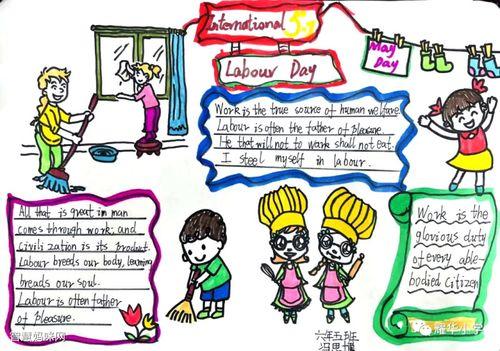 International 5.1
Labour Day
May
Day
Work is the true source of human welfare.
Labour is often the father of pleasure.
He that will not to work shall not eat.
I steel myself in labour.
All that is great in man
comes through work, and
civilization is its product.
Labour breeds our body, learning
breads our soul.
Labour is often father
of pleasure.
Work is the
glovious duty
of every able-
bodied citizen
六年五班
冯思
智慧妈咪网
耀华小学